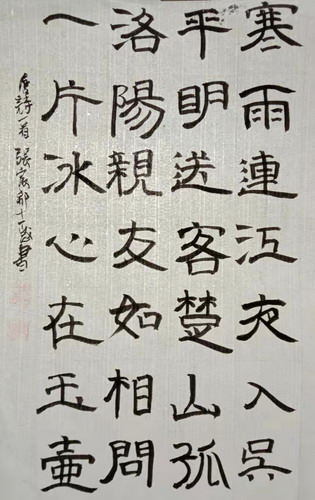 寒雨連江夜入吳
平明送客楚山孤
洛陽親友如相問
一片冰心在玉壺
唐詩一首 張家郡十一歲書